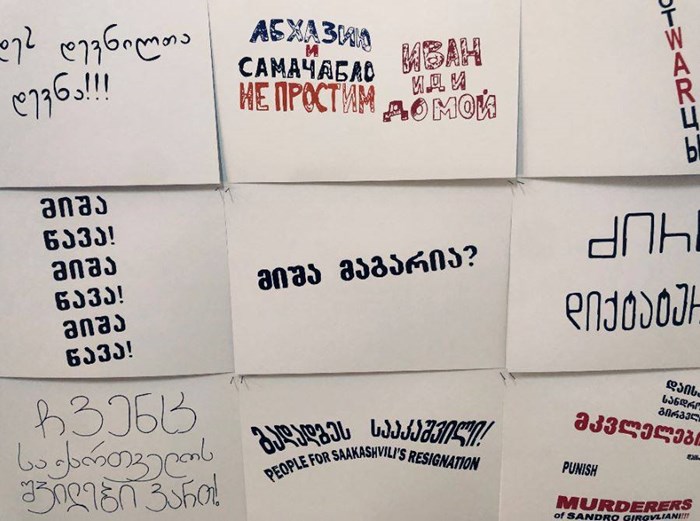 დეს დევნილთა
დევნა!!!
АБХАЗИЮ
И
САМАЧАБЛО
НЕ ПРОСТИМ
ИВАН
ИДИ
ДОМОЙ
ОТWARЦЫ
მიშა
წავა!
მიშა
წავა!
მიშა
წავა!
მიშა მაგარია?
დიქტატურ
ჩვენც
საქართველოს
შვილები ვართ!
გადადგეს სააკაშვილი!
PEOPLE FOR SAAKASHVILI'S RESIGNATION
დაის
სანდრო
გირგვლ
მკვლელები
PUNISH
MURDERERS
of SANDRO GIRGVLIANI!!!